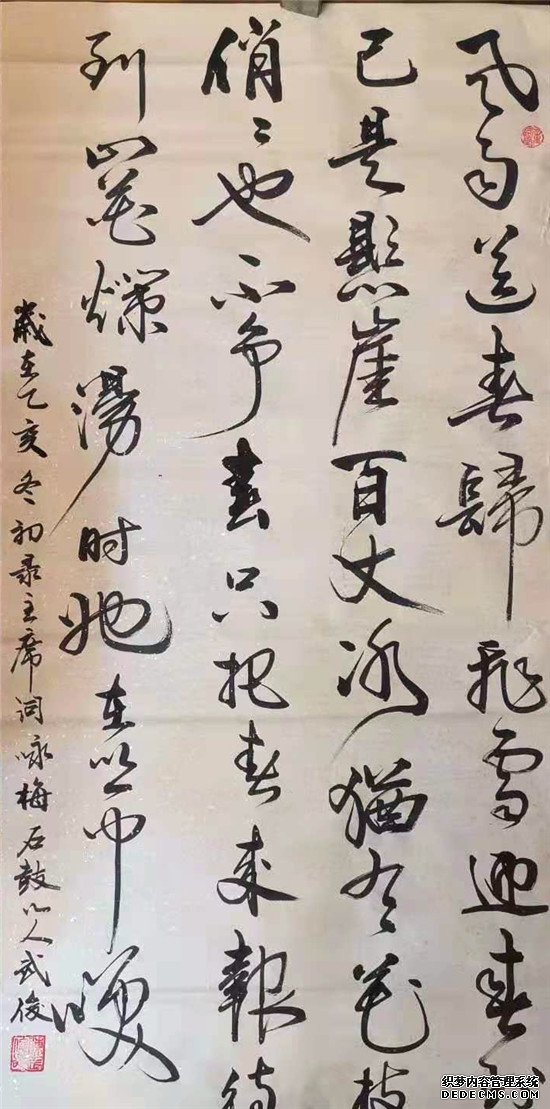 风雨送春歸飛雪迎春到
已是懸崖百丈冰猶有花枝
俏〻也不争春只把春来報待
到山花爛漫时她在丛中笑
歲在乙亥冬初录主席词咏梅石鼓山人武俊
织梦内容管理系统
DEDECMS.COM